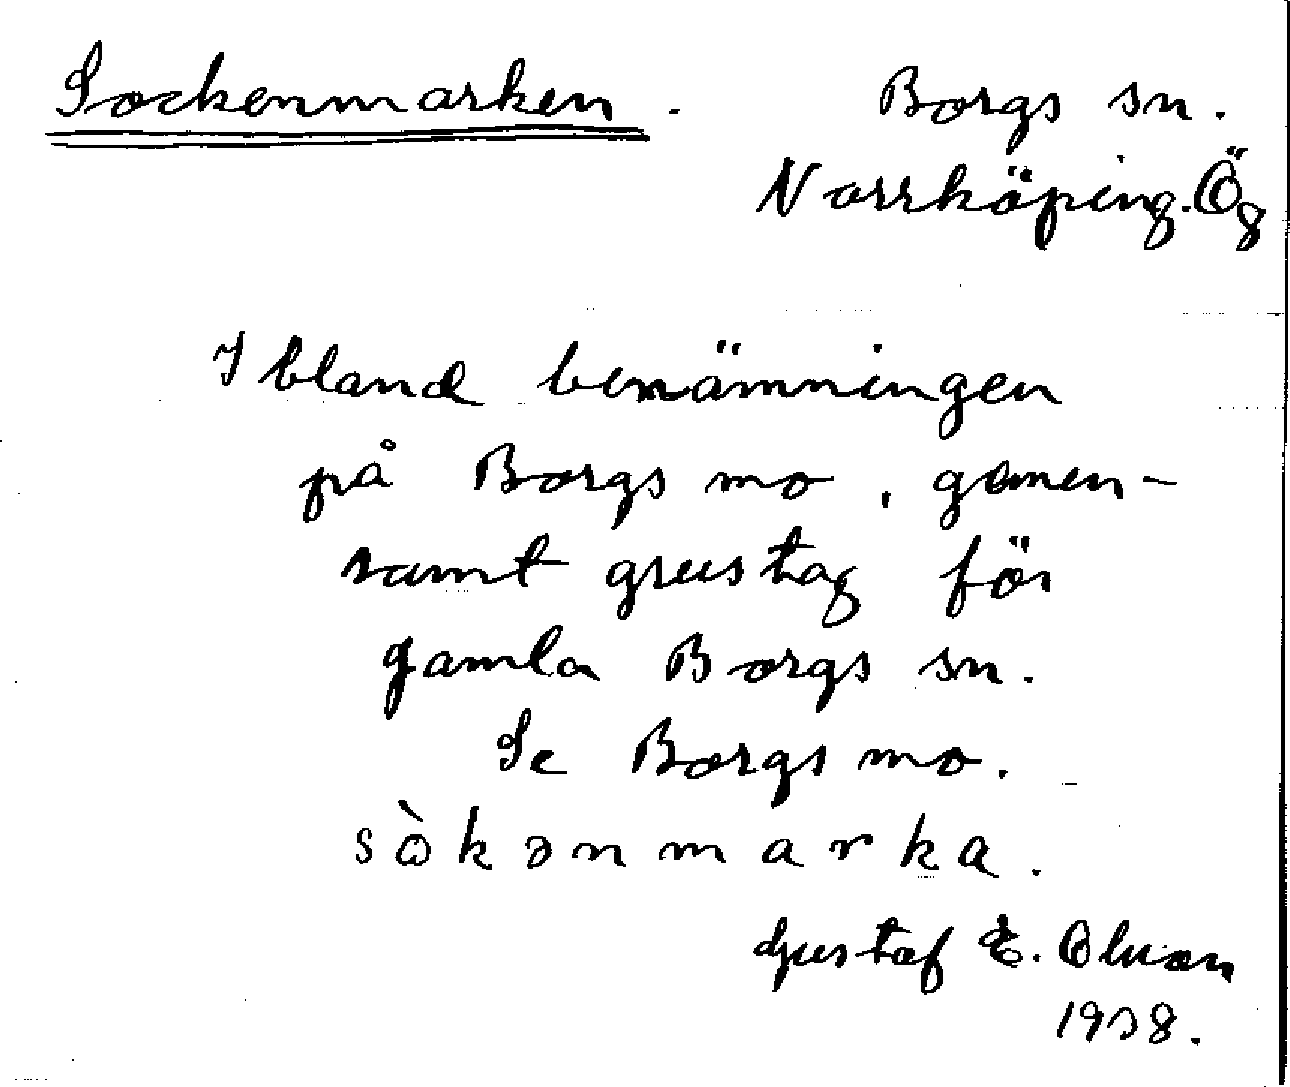 Sockenmarken. Borgs sn.
Norrköping. Ög
Ibland benämningen
på Borgs mo, gemen-
samt grustag för
gamla Borgs sn.
Se Borgs mo.
sòkənmarka.
Gustaf E. Olsson
1938.